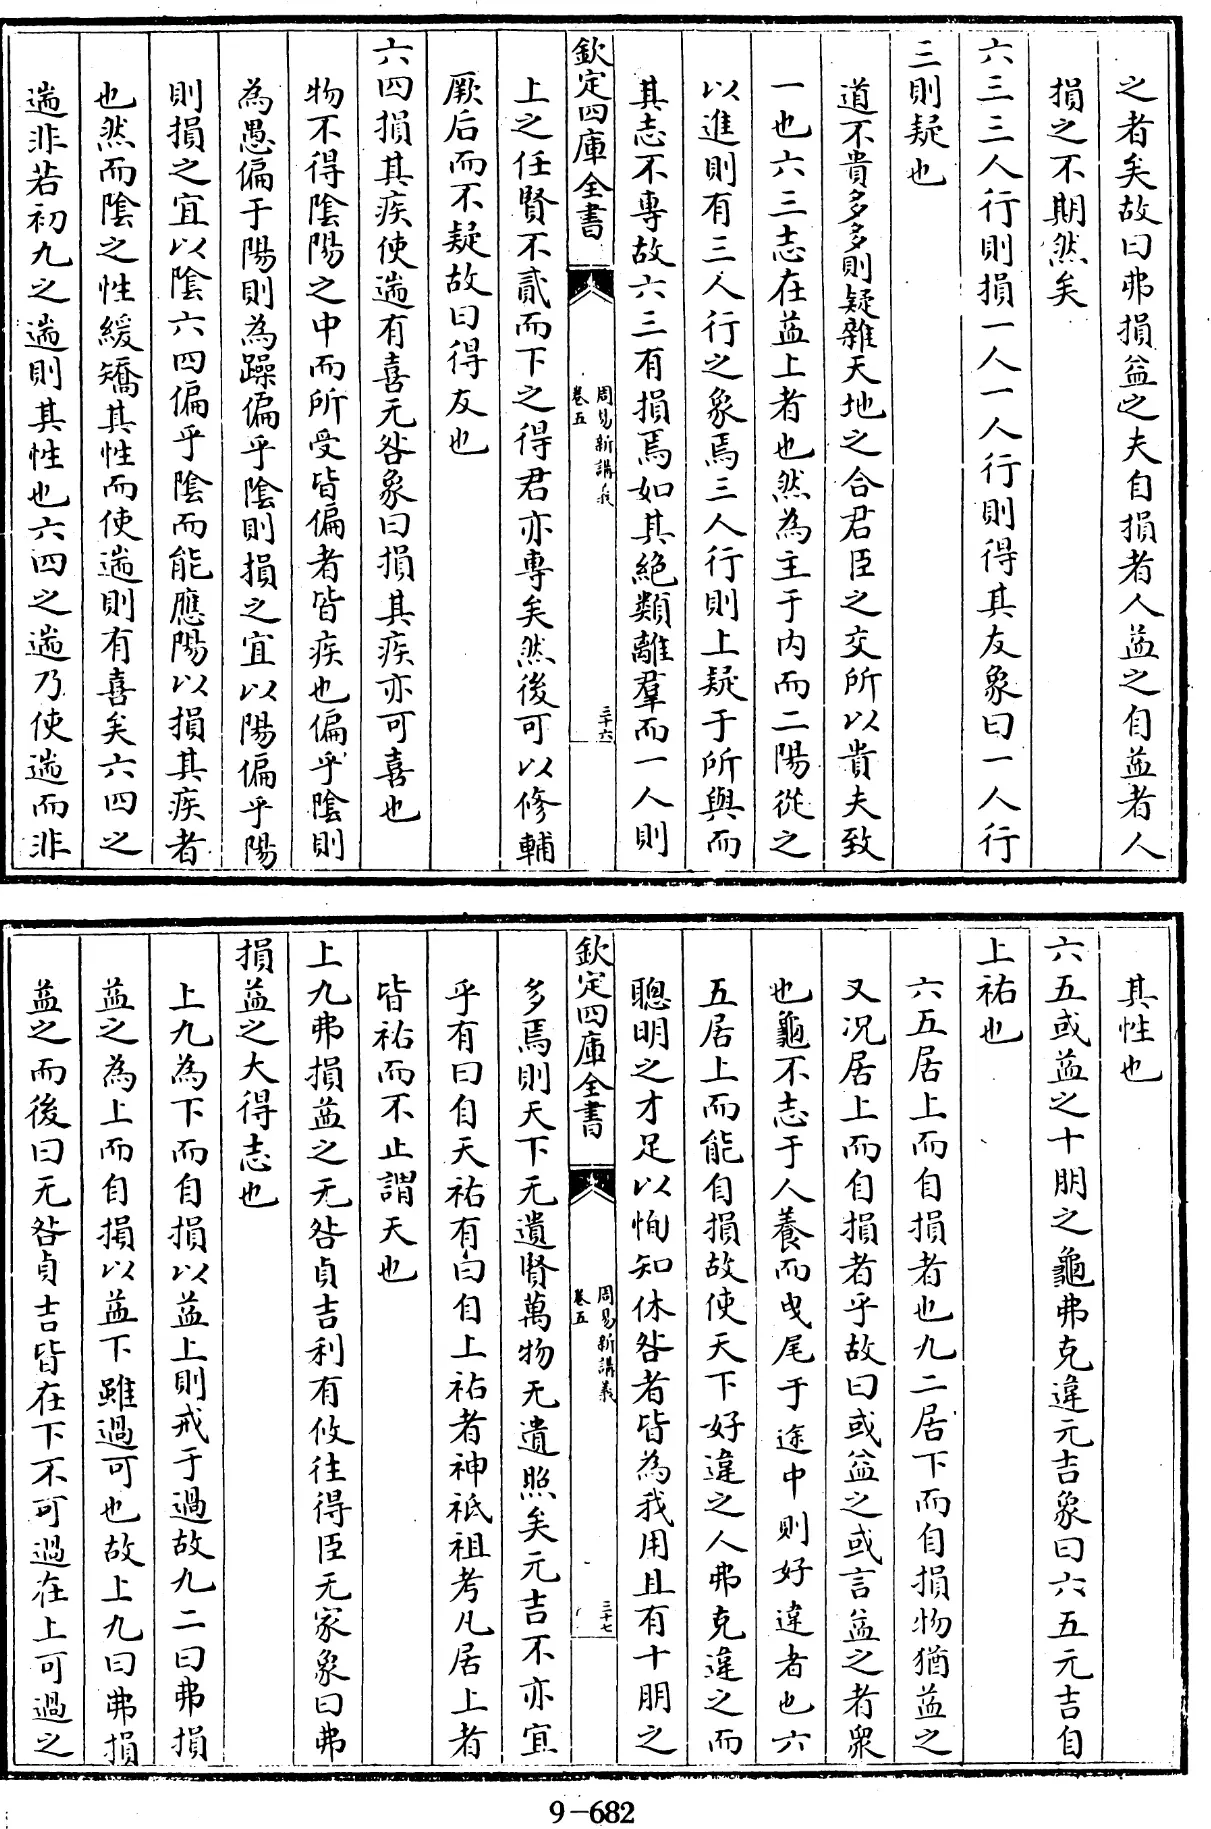 之者矣故曰弗損益之夫自損者人益之自益者人
損之不期然矣
六三三人行則損一人一人行則得其友象曰一人行
三則疑也
道不貴多多則疑雜天地之合君臣之交所以貴夫致
一也六三志在益上者也然為主于内而二陽從之
以進則有三人行之象焉三人行則上疑于所與而
其志不專故六三有損焉如其絶類離羣而一人則
欽定四庫全書
周易新講義
卷五
三十六
上之任賢不貳而下之得君亦專矣然後可以修輔
厥后而不疑故曰得友也
六四損其疾使遄有喜无咎象曰損其疾亦可喜也
物不得隂陽之中而所受皆偏者皆疾也偏乎隂則
為愚偏于陽則為躁偏乎隂則損之宜以陽偏乎陽
則損之宜以隂六四偏乎隂而能應陽以損其疾者
也然而隂之性緩矯其性而使遄則有喜矣六四之
遄非若初九之遄則其性也六四之遄乃使遄而非
其性也
六五或益之十朋之龜弗克違元吉象曰六五元吉自
上祐也
六五居上而自損者也九二居下而自損物猶益之
又况居上而自損者乎故曰或益之或言益之者衆
也龜不志于人養而曳尾于途中則好違者也六
五居上而能自損故使天下好違之人弗克違之而
聰明之才足以恂知休咎者皆為我用且有十朋之
欽定四庫全書
周易新講義
卷五
三十七
多焉則天下无遺賢萬物无遺照矣元吉不亦宜
乎有曰自天祐有曰自上祐者神祇祖考凡居上者
皆祐而不止謂天也
上九弗損益之无咎貞吉利有攸往得臣无家象曰弗
損益之大得志也
上九為下而自損以益上則戒于過故九二曰弗損
益之為上而自損以益下雖過可也故上九曰弗損
益之而後曰无咎貞吉皆在下不可過在上可過之
9-682